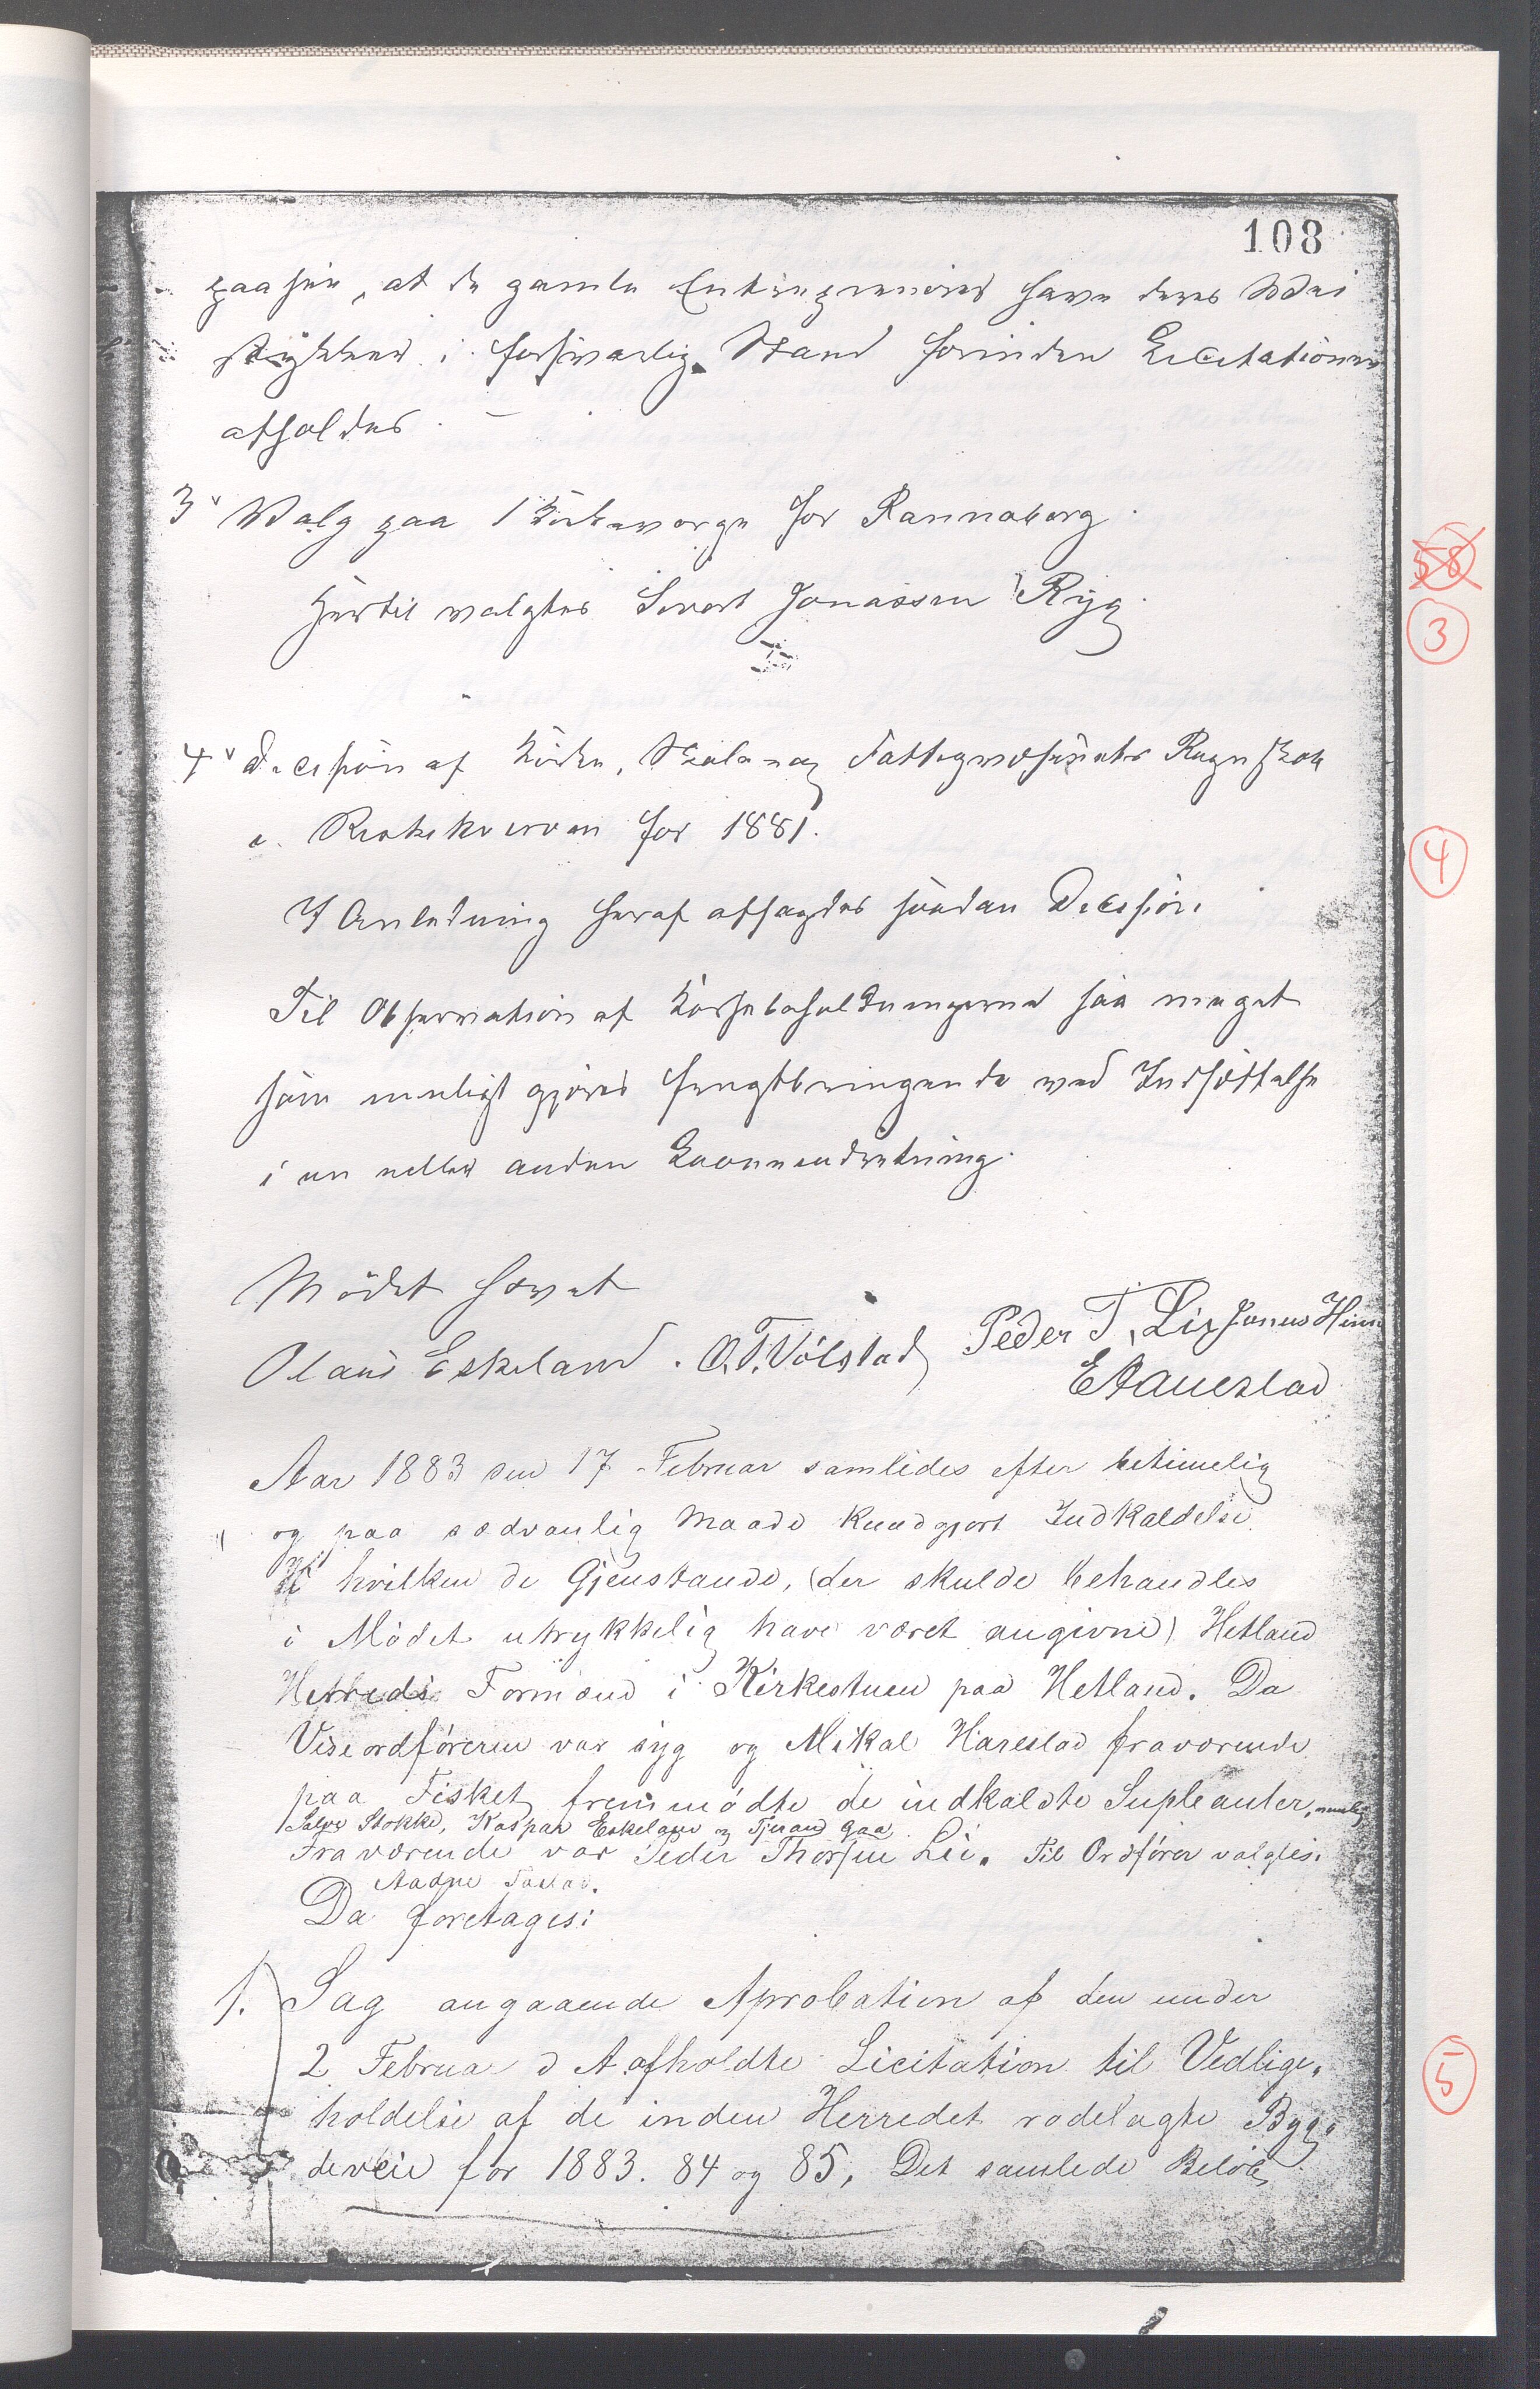 108
paase, at de gamle Entreprenører have deres Vei
stykker i forsvarlig Stand forinden Licitationen
afholdes. —
3 Valg paa 1 Kirkeværge for Rannaberg.
Hertil valgtes Sivert Jonassen Ryg.
58
3
4 Decision af Kirke, Skole og Fattigvæsenets Regnskab
for 1881.
4
I Anledning heraf afsagdes saadan Decision
Til Observation at Kassebeholdningerne saa meget
som muligt gjøres frugtbringende ved Indsættelse
i en eller anden Laaneindretning.
Mødet hævet
Olaus Eskeland. O. T. Vølstad Peder T. Lie Jonas Hinn
E Haueslad
Aar 1883 den 17 Februar samledes efter betimelig
og paa sædvanlig Maade kundgjort Indkaldelse
i hvilken de Gjenstande, (der skulde behandles
i Mødet utrykkelig have været angivne) Hetland
Herreds Formænd i Kirkestuen paa Hetland. Da
Viseordføreren var syg og Mikal Hareslad fraværende
paa Fisket fremmødte de indkaldte Supleanter, nemlig
Salve Stokke, Kaspar Eskeland og Tjerand Gaa
Fraværende var Peder Thorsen Lie. Til Ordfører valgtes.
Aadne
Da foretages:
1. Sag angaaende Aprobation af den under
2 Februa d A afholdte Licitation til Vedlige,
5
holdelse af de inden Herredet rodelagte Byg,
deveie for 1883. 84 og 85, Det samlede Beløb